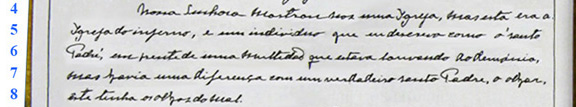 4 Nossa Senhora mostrou-nos uma Igreja, mas esta era a
5 Igreja do inferno, e um indivíduo que eu descrevo como o santo
6 Padre, em frente de uma multidão que estava louvando ao demónio,
7 mas havia uma diferença com um verdadeiro santo Padre, o olhar,
8 este tinha os olhos do mal.